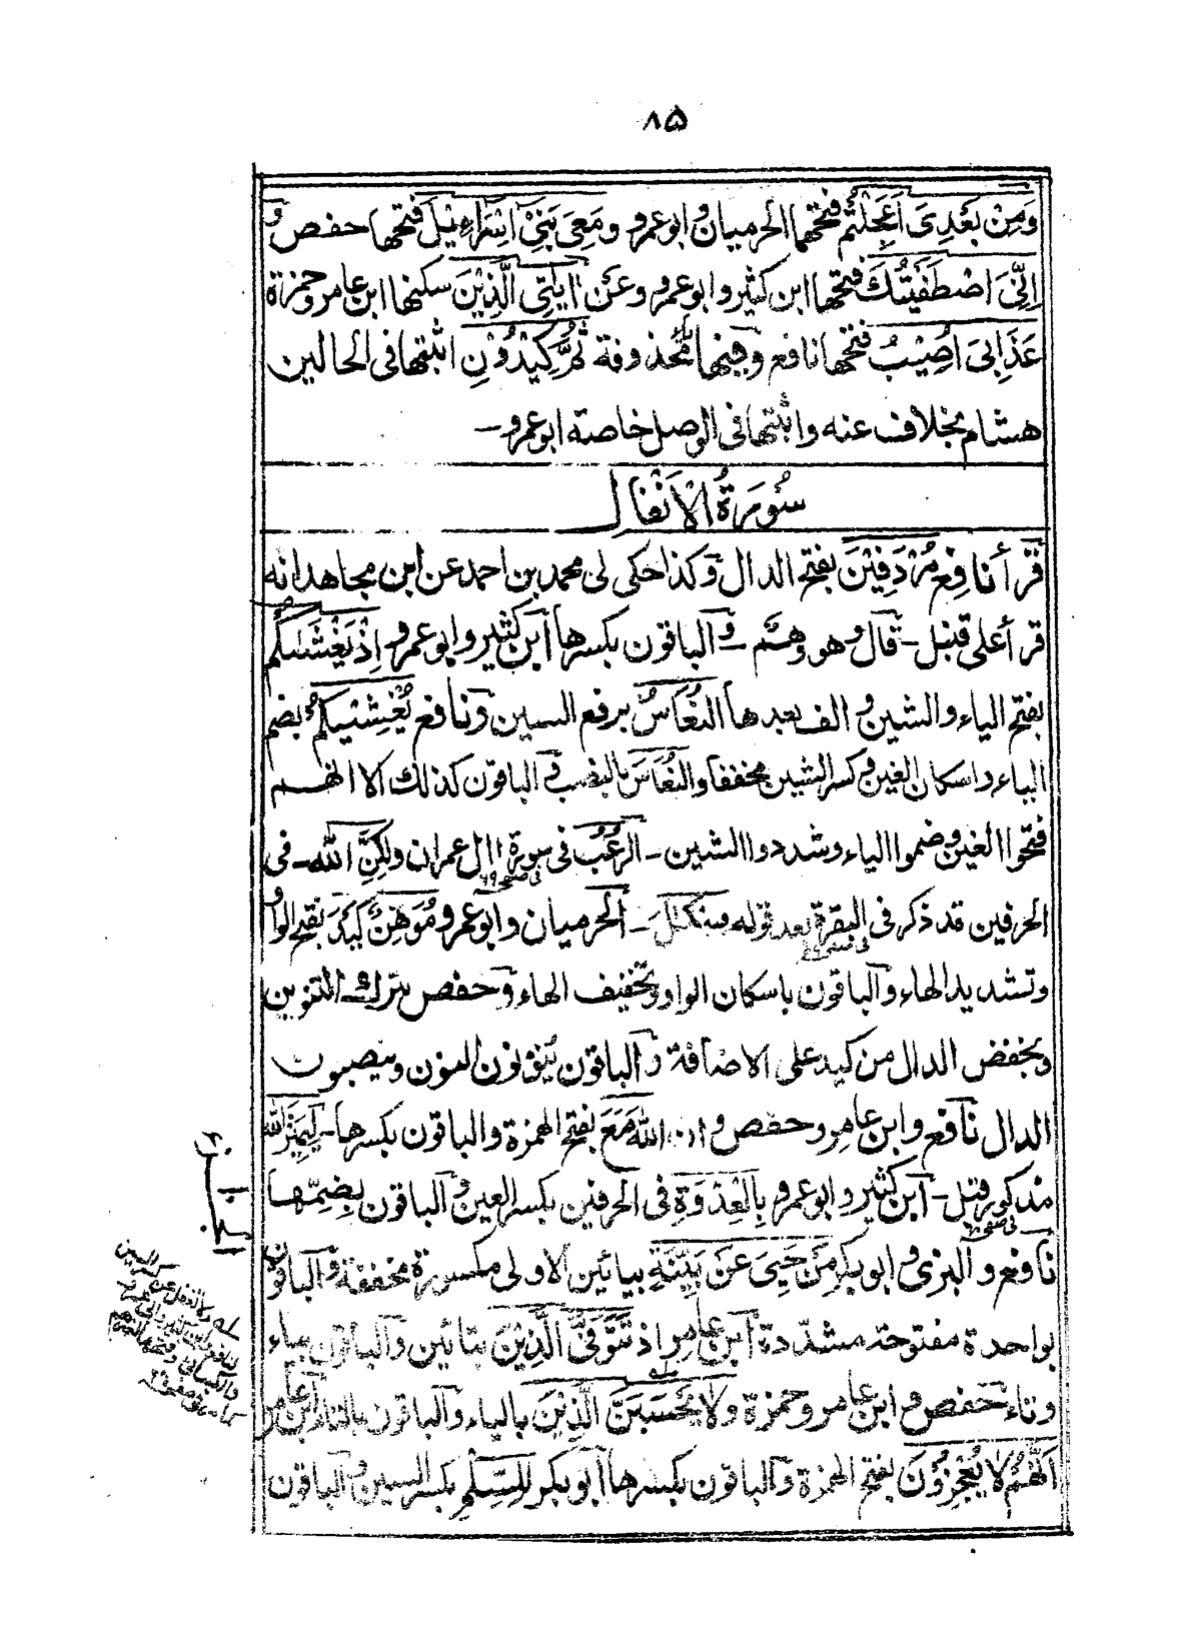 ۸۵
وَمِنْ بَعْدِىَ اَعَجِلْتُمْ فتحها الحرميان وابوعمرو ومَعِىَ بَنِىْ اِسْرَاءِيْلَ فتحها حفص و
اِنِّىَ اصْطَفَيْتُكَ فتحها ابن كثير وابوعمرو وعَنْ اٰيٰتِى الَّذِيْنَ سكنها ابن عامر وحمزة
عَذَابِىَ اُصِيْبُ فتحها نافع وفيها محذوفة ثُمَّ كِيْدُوْنِ اثبتها فى الحالين
هشام بخلاف عنه واثبتها فى الوصل خاصة ابوعمرو –
سُوْرَةُ الْاَنْفَال
قرأ نافع مُرْدَفِيْنَ بفتح الدال وكذا حكى لى محمد بن احمد عن ابن مجاهد انه
قرأ على قنبل – قال وهو وهم – والباقون بكسرها ابن كثير وابوعمرو اِذْ يَغْشٰىكُمُ
بفتح الياء والشين و الف بعدها النُّعَاسُ برفع السين ونافع يُغْشِيْكُمُ بضم
الياء واسكان الغين وكسر الشين مخففا والنُّعَاسَ بالنصب و الباقون كذلك الا انهم
فتحوا الغين وضموا الياء وشددوا الشين – الرُّعْبَ فى سورة اٰل عمران ولٰكِنَّ اللّٰه – فى
فى صفحه ٦٩
الحرفين قد ذكر فى البقرة بعد قوله ميكٰىل – الحرميان وابوعمرو مُوَهِّنٌ كَيْدَ بفتح الواو
وتشديد الهاء والباقون باسكان الواو وتخفيف الهاء وحفص بترك التنوين
وبخفض الدال من كيد على الاضافة والباقون ينونون النون وينصبون
الدال نافع وابن عامر وحفص وان اللّٰه مَعَ بفتح الهمزة والباقون بكسرها – لِيَمِيْزَ اللّٰه
مذكور قبل – ابن كثير وابوعمرو بِالْعِدْوَةِ فى الحرفين بكسر العين والباقون بضمّها
نافع والبزى وابوبكر مَنْ حَيِىَ عَنْ بَيِّنَةٍ بيائين الاولى مكسورة مخففة والباقون
بواحدة مفتوحة مشدّدة ابن عامر اذ تَتَوَفَّى الَّذِيْنَ بتائين والباقون بياء
وتاء حفص وابن عامر وحمزة ولا يَحْسَبَنَّ الَّذِيْنَ بالياء والباقون بالتاء ابن عامر
اَنَّهُمْ لَا يُعْجِزُوْنَ بفتح الهمزة والباقون بكسرها ابوبكر لِلسِّلْمِ بكسر السين والباقون